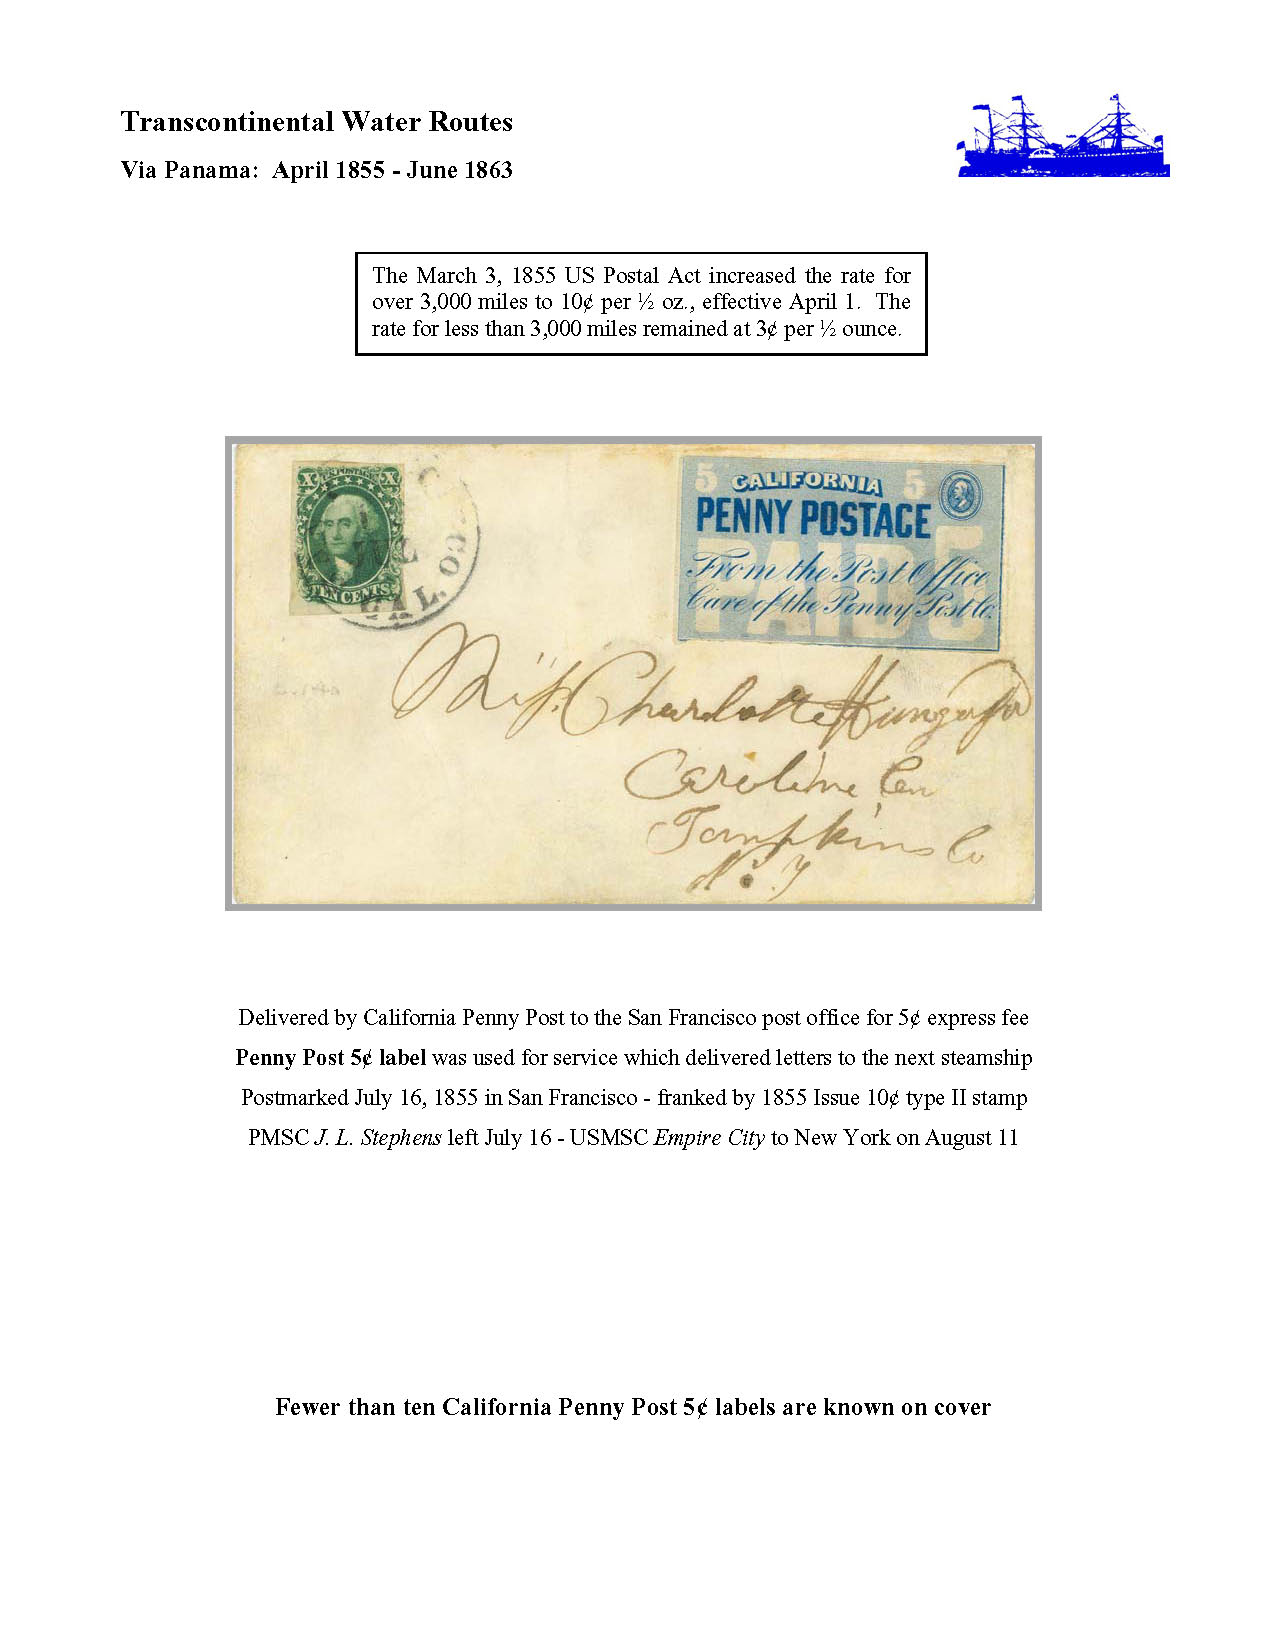 Transcontinental Water Routes
Via Panama: April 1855 - June 1863
The March 3, 1855 US Postal Act increased the rate for
over 3,000 miles to 10¢ per ½ oz., effective April 1. The
rate for less than 3,000 miles remained at 3¢ per ½ ounce.
X POSTAGE X
TEN CENTS
CAL.
CO
5 CALIFORNIA 5
PENNY POSTAGE
PAID 5
From the Post Office
Care of the Penny Post Co.
Miss Charlotte
Caroline Cen
Tompkins Co
N. Y
Delivered by California Penny Post to the San Francisco post office for 5¢ express fee
Penny Post 5¢ label was used for service which delivered letters to the next steamship
Postmarked July 16, 1855 in San Francisco - franked by 1855 Issue 10¢ type II stamp
PMSC J. L. Stephens left July 16 - USMSC Empire City to New York on August 11
Fewer than ten California Penny Post 5¢ labels are known on cover